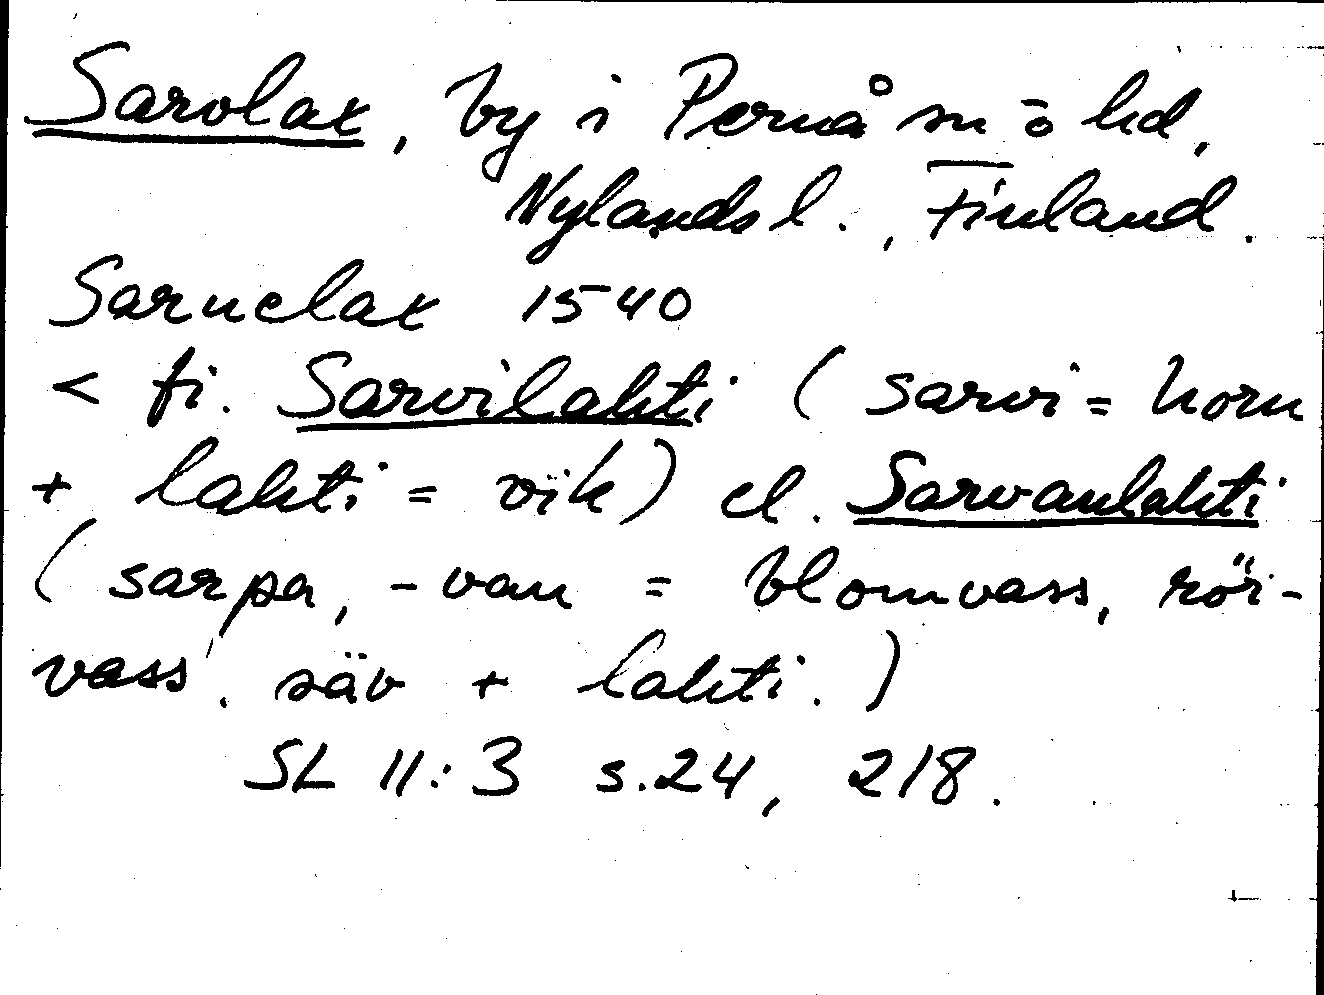 Sarvlax, by i Pernå sn o hd,
Nylands l., Finland.
Saruelax 1540
< fi. Sarvilahti (sarvi = horn
+ lahti = vik) el. Sarvanlahti
(sarpa, -van = blomvass, rör-
vass, säv + lahti.)
SL 11:3 s.24, 218.